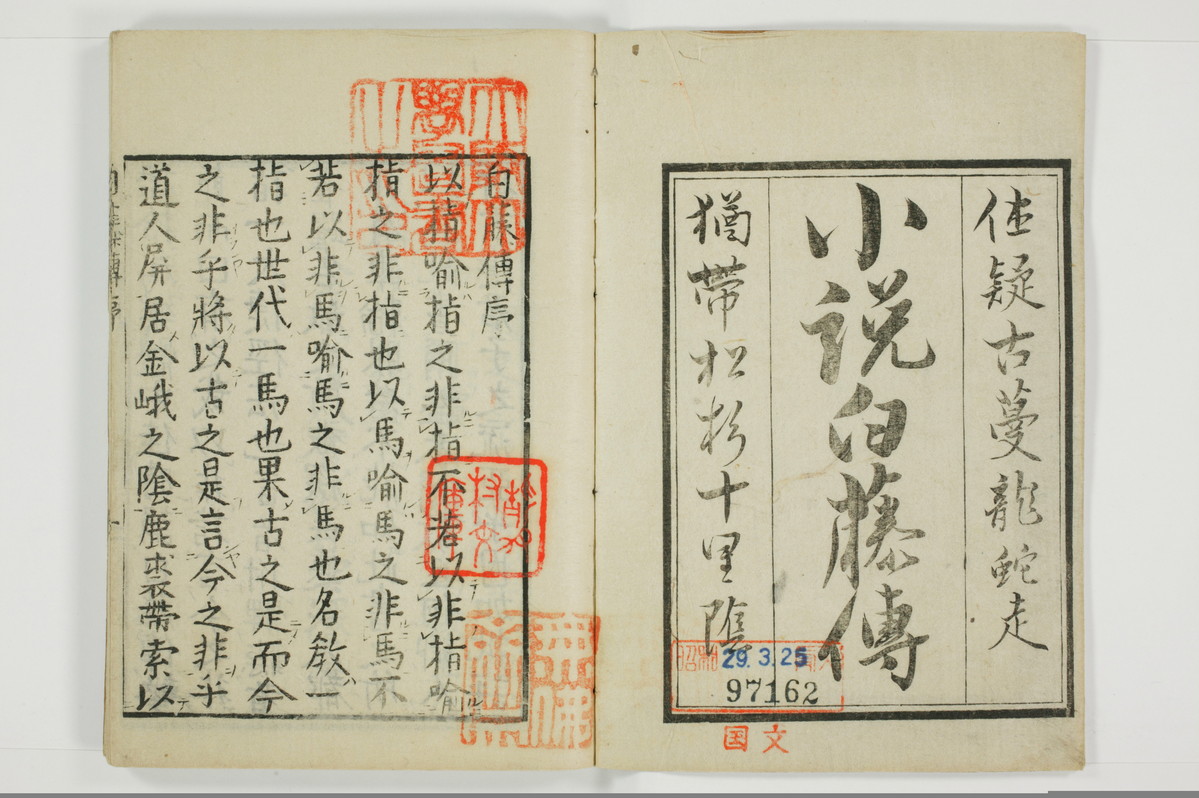 佳疑古蔓龍蛇走
小説白藤傳
猶帯松杉十里陰
昭和 29.3.25
97162
国文
白藤傳序
以指喻指之非指不若以非指喻
指之非指也以馬喻馬之非馬不
若以非馬喻馬之非馬也名教一
指也世代一馬也果古之是而今
之非乎將以古之是言今之非乎
道人屏居金峨之陰鹿裘帶索以
白藤傳序